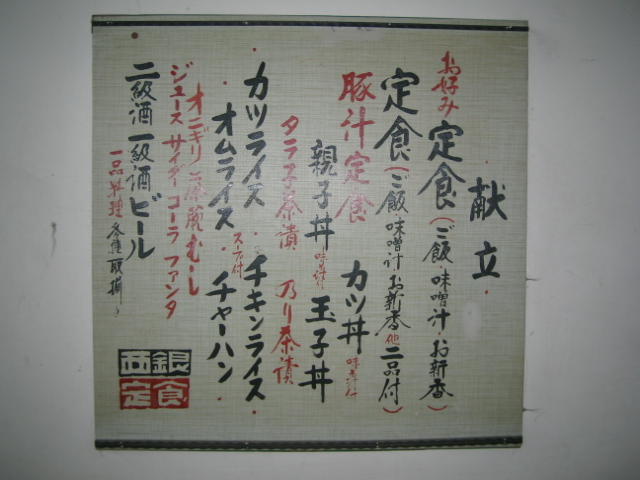 献立
お好み定食(ご飯・味噌汁・お新香)
定食(ご飯・味噌汁・お新香他二品付)
豚汁定食 カツ丼味噌汁付
親子丼味噌汁付 玉子丼
タラ子茶漬 乃り茶漬
カツライス・チキンライス
オムライススープ付・チャーハン
オニギリ 茶碗むし
ジュース サイダー コーラ ファンタ
二級酒 一級酒 ビール
一品料理各種取揃
西銀
定食